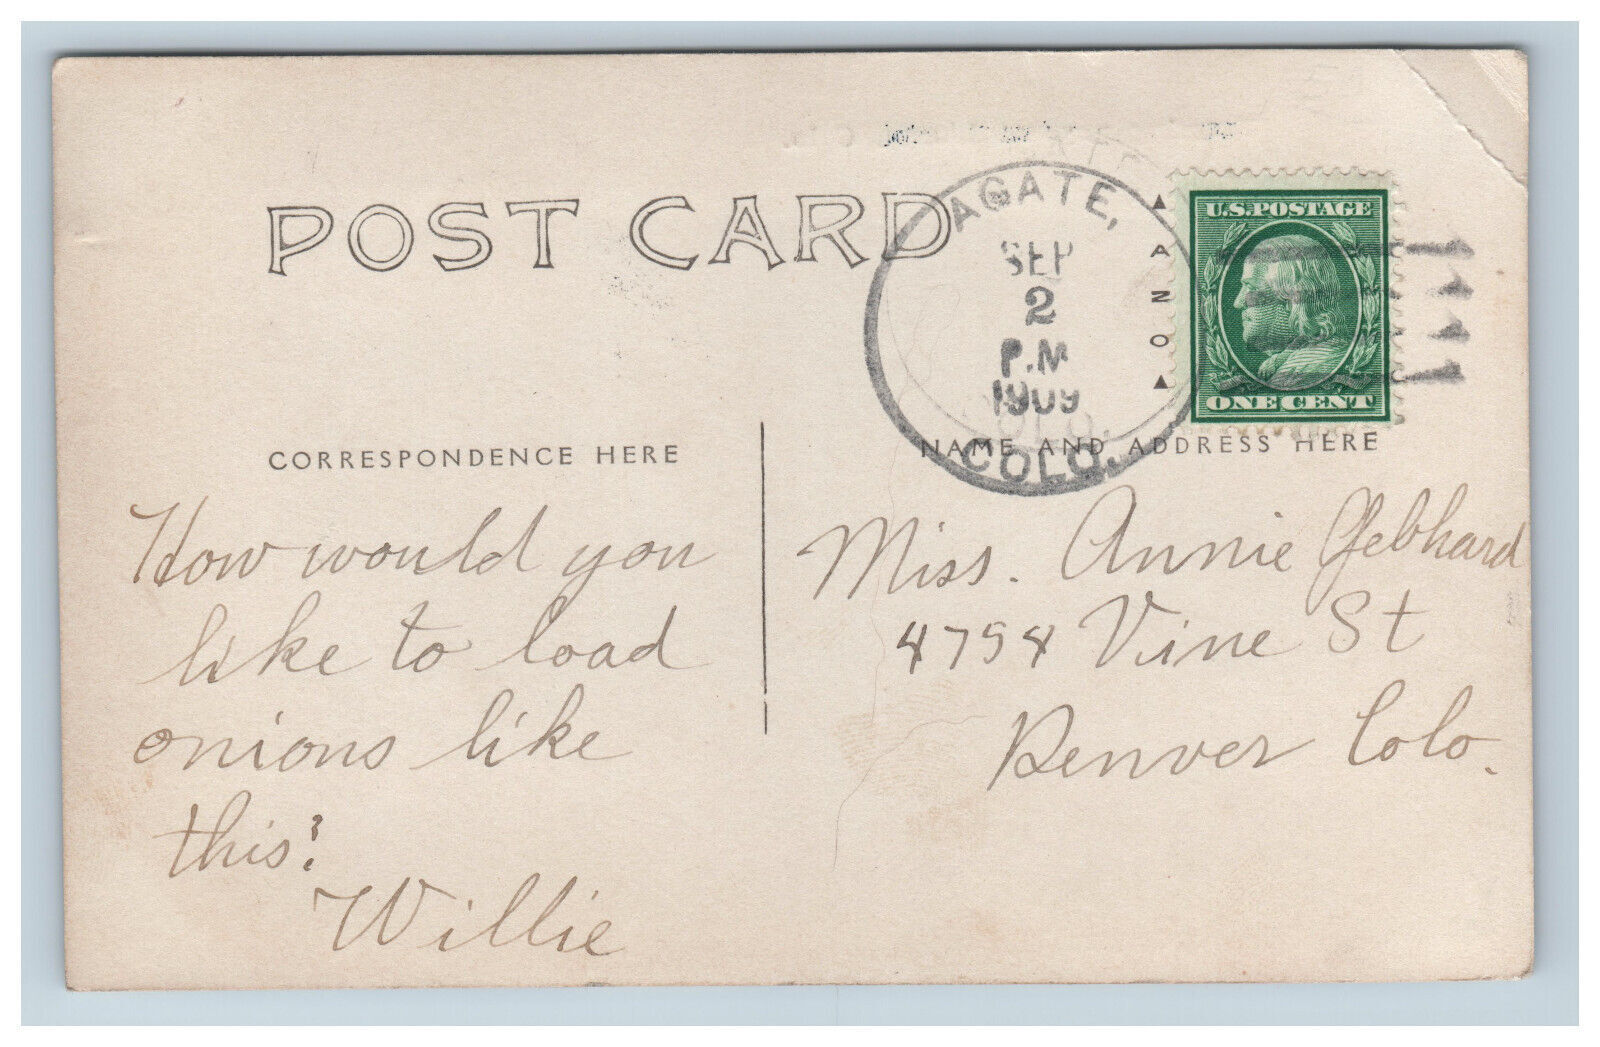 POST CARD
AGATE,
SEP
2
P.M
1909
COLO.
U.S. POSTAGE
ONE CENT
AZO
CORRESPONDENCE HERE
NAME AND ADDRESS HERE
How would you
like to load
onions like
this?
Willie
Miss. Annie Gebhard
4754 Vine St
Denver Colo.